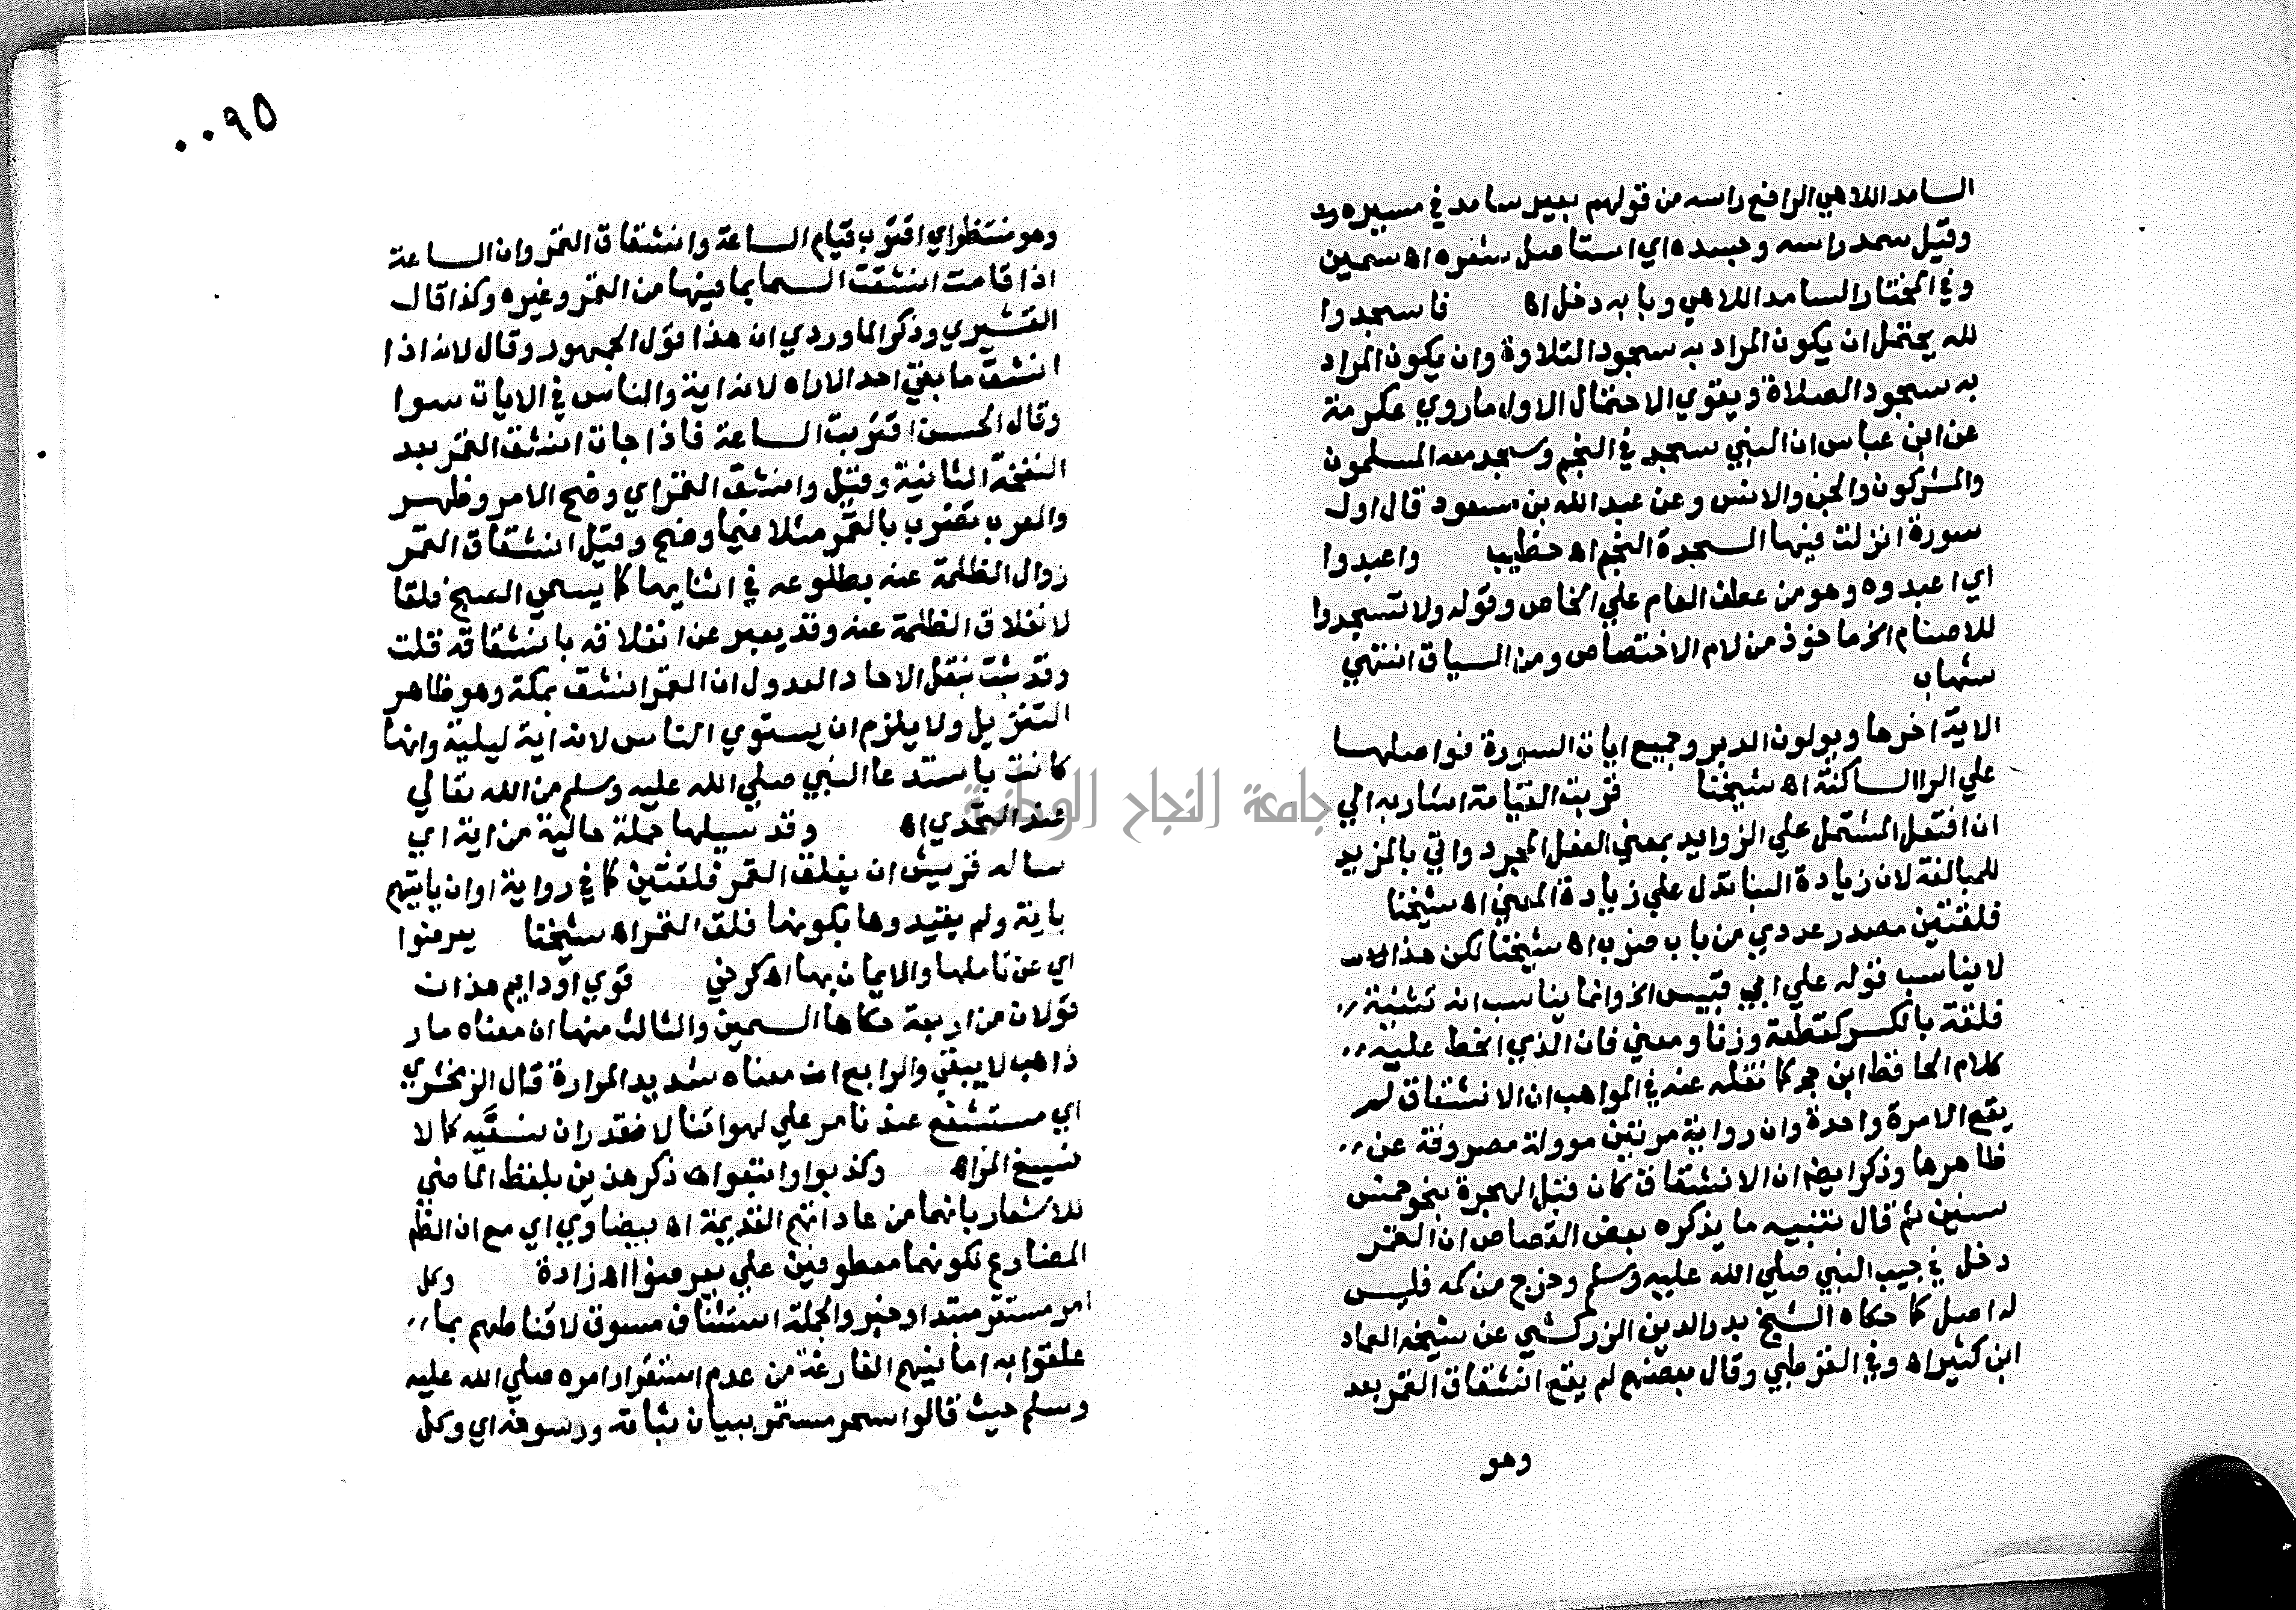 السامد اللاهي الرافع راسه من قولهم بعير سامد في مسيره
وقيل سمد راسه وجسده اي استاصل شعره اه سمين
وفي المختار السامد اللاهي وبابه دخل اه فاسجدوا
لله يحتمل ان يكون المراد به سجود التلاوة وان يكون المراد
به سجود الصلاة ويقوي الاحتمال الاول ما روي عكرمة
عن ابن عباس ان النبي سجد في النجم وسجد معه المسلمون
والمشركون والجن والانس وعن عبد الله بن مسعود قال اول
سورة انزلت فيها السجدة النجم اه خطيب واعبدوا
اي اعبدوه وهو من عطف العام علي الخاص وقوله ولا تسجدوا
للاصنام الخ ماخوذ من لام الاختصاص ومن السياق انتهي
شهاب
الاية اخرها ويولون الدبر وجميع ايات السورة فواصلها
علي الرا الساكنة اه شيخنا قربت القيامة اشار به الي
ان افتعل المشتمل علي الزوايد بمعني الفعل المجرد واتي بالمزيد
للمبالغة لان زيادة البنا تدل علي زيادة المعني اه شيخنا
فلقتين مصدر عددي من باب ضرب اه شيخنا لكن هذا
لا يناسب قوله علي ابي قبيس الخ وانما يناسب انه تثنية
فلقة بالكسر كقطعة وزنا ومعني فان الذي انحط عليه
كلام الحافظ ابن حجر كما نقله عنه في المواهب ان الانشقاق لم
يقع الا مرة واحدة وان رواية مرتين موولة مصروفة عن
ظاهرها وذكر ايضا ان الانشقاق كان قبل الهجرة بنحو خمس
سنين ثم قال تنبيه ما يذكره بعض القصاص ان القمر
دخل في جيب النبي صلي الله عليه وسلم وخرج من كمه فليس
له اصل كما حكاه الشيخ بدر الدين الزركشي عن شيخه العماد
ابن كثير اه وفي القرطبي وقال بعضهم لم يقع انشقاق القمر بعد
وهو
٠٠٩٥
وهو منتظر اي اقترب قيام الساعة وانشقاق القمر وان الساعة
اذا قامت انشقت السما بما فيها من القمر وغيره وكذا قال
القشيري وذكر الماوردي ان هذا قول الجمهور وقال لانه اذا
انشق ما بقي احد الا راه لانه اية والناس في الايات سوا
وقال الحسن اقتربت الساعة فاذا جات انشق القمر بعد
النفخة الثانية وقيل وانشق القمر اي وضح الامر وظهر
والعرب تضرب بالقمر مثلا فيما وضح وقيل انشقاق القمر
زوال الظلمة عنه بطلوعه في اثنايها كما يسمي الصبح فلقا
لانفلاق الظلمة عنه وقد يعبر عن انفلاقه بانشقاقه قلت
وقد ثبت بنقل الاحاد العدول ان القمر انشق بمكة وهو ظاهر
التنزيل ولا يلزم ان يستوي الناس لانه اية ليلية وانها
كانت باستدعا النبي صلي الله عليه وسلم من الله تعالي
عند التحدي اه وقد سيلها جملة حالية من اية اي
ساله قريش ان يفلق القمر فلقتين كما في رواية او ان ياتيهم
باية ولم يقيدوها بكونها فلق القمر اه شيخنا يعرضوا
اي عن تاملها والايمان بها اه كرخي قوي او دايم هذان
قولان من اربعة حكاها السمين والثالث منها ان معناه مار
ذاهب لا يبقي والرابع ان معناه شديد المرارة قال الزمخشري
اي مستبشع عندنا مر علي لهواتنا لا نقدر ان نسيغه كما لا
نسيغ المر اه وكذبوا واتبعوا اه ذكر هذين بلفظ الماضي
للاشعار بانهما من عادتهم القديمة اه بيضاوي اي مع ان الظم
المضارع لكونهما معطوفين علي يعرضوا اه زادة وكل
امر مستقر مبتدا وخبر والجملة استئناف مسوق لاقناطهم بما
علقوا به امانيهم الفارغة من عدم استقرار امره صلي الله عليه
وسلم حيث قالوا سحر مستمر ببيان ثباته ورسوخه اي وكل
جامعة النجاح الوطنية